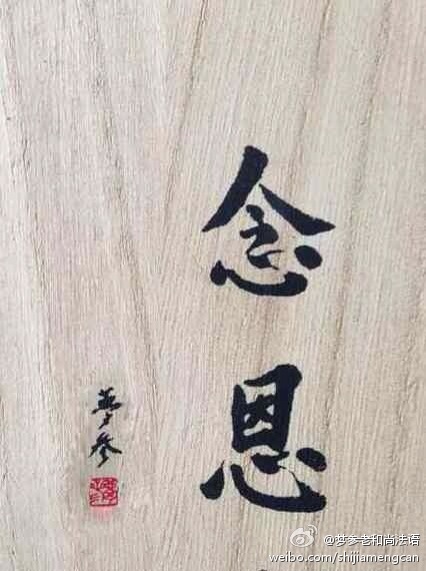 念恩
夢参
@梦参老和尚法语
weibo.com/shijiamengcan